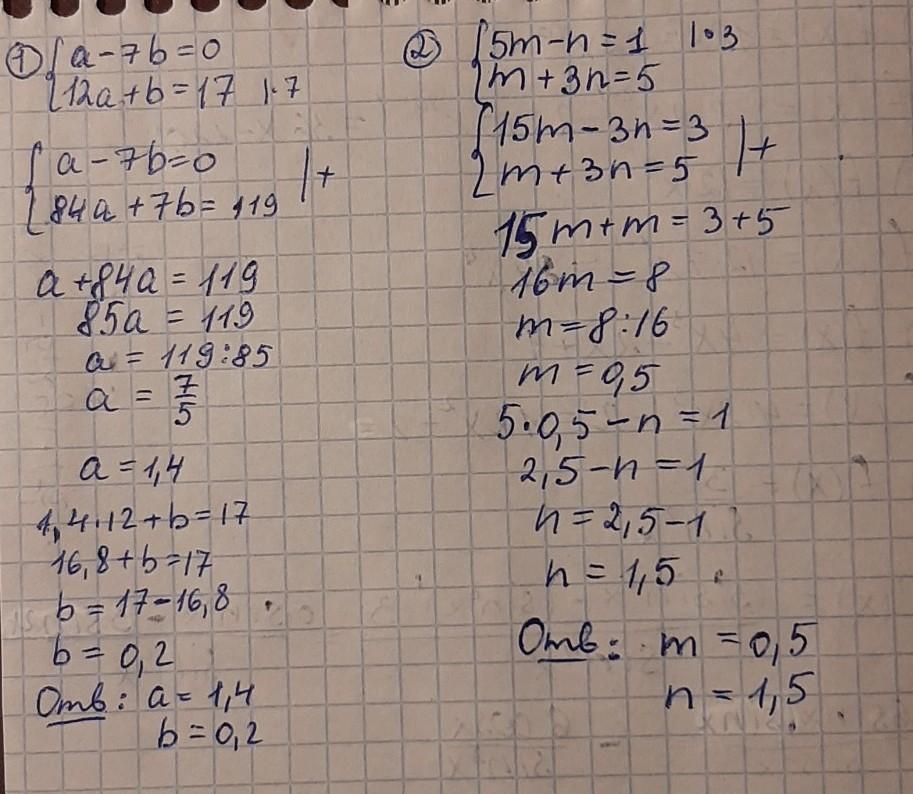 ① { a - 7b = 0
12a + b = 17 |·7
{ a - 7b = 0
84a + 7b = 119 |+
a + 84a = 119
85a = 119
a = 119:85
a = 7/5
a = 1,4
1,4·12 + b = 17
16,8 + b = 17
b = 17 - 16,8
b = 0,2
Отв: a = 1,4
b = 0,2
② { 5m - n = 1 |·3
m + 3n = 5
{ 15m - 3n = 3
m + 3n = 5 |+
15m + m = 3 + 5
16m = 8
m = 8:16
m = 0,5
5·0,5 - n = 1
2,5 - n = 1
n = 2,5 - 1
n = 1,5
Отв: m = 0,5
n = 1,5